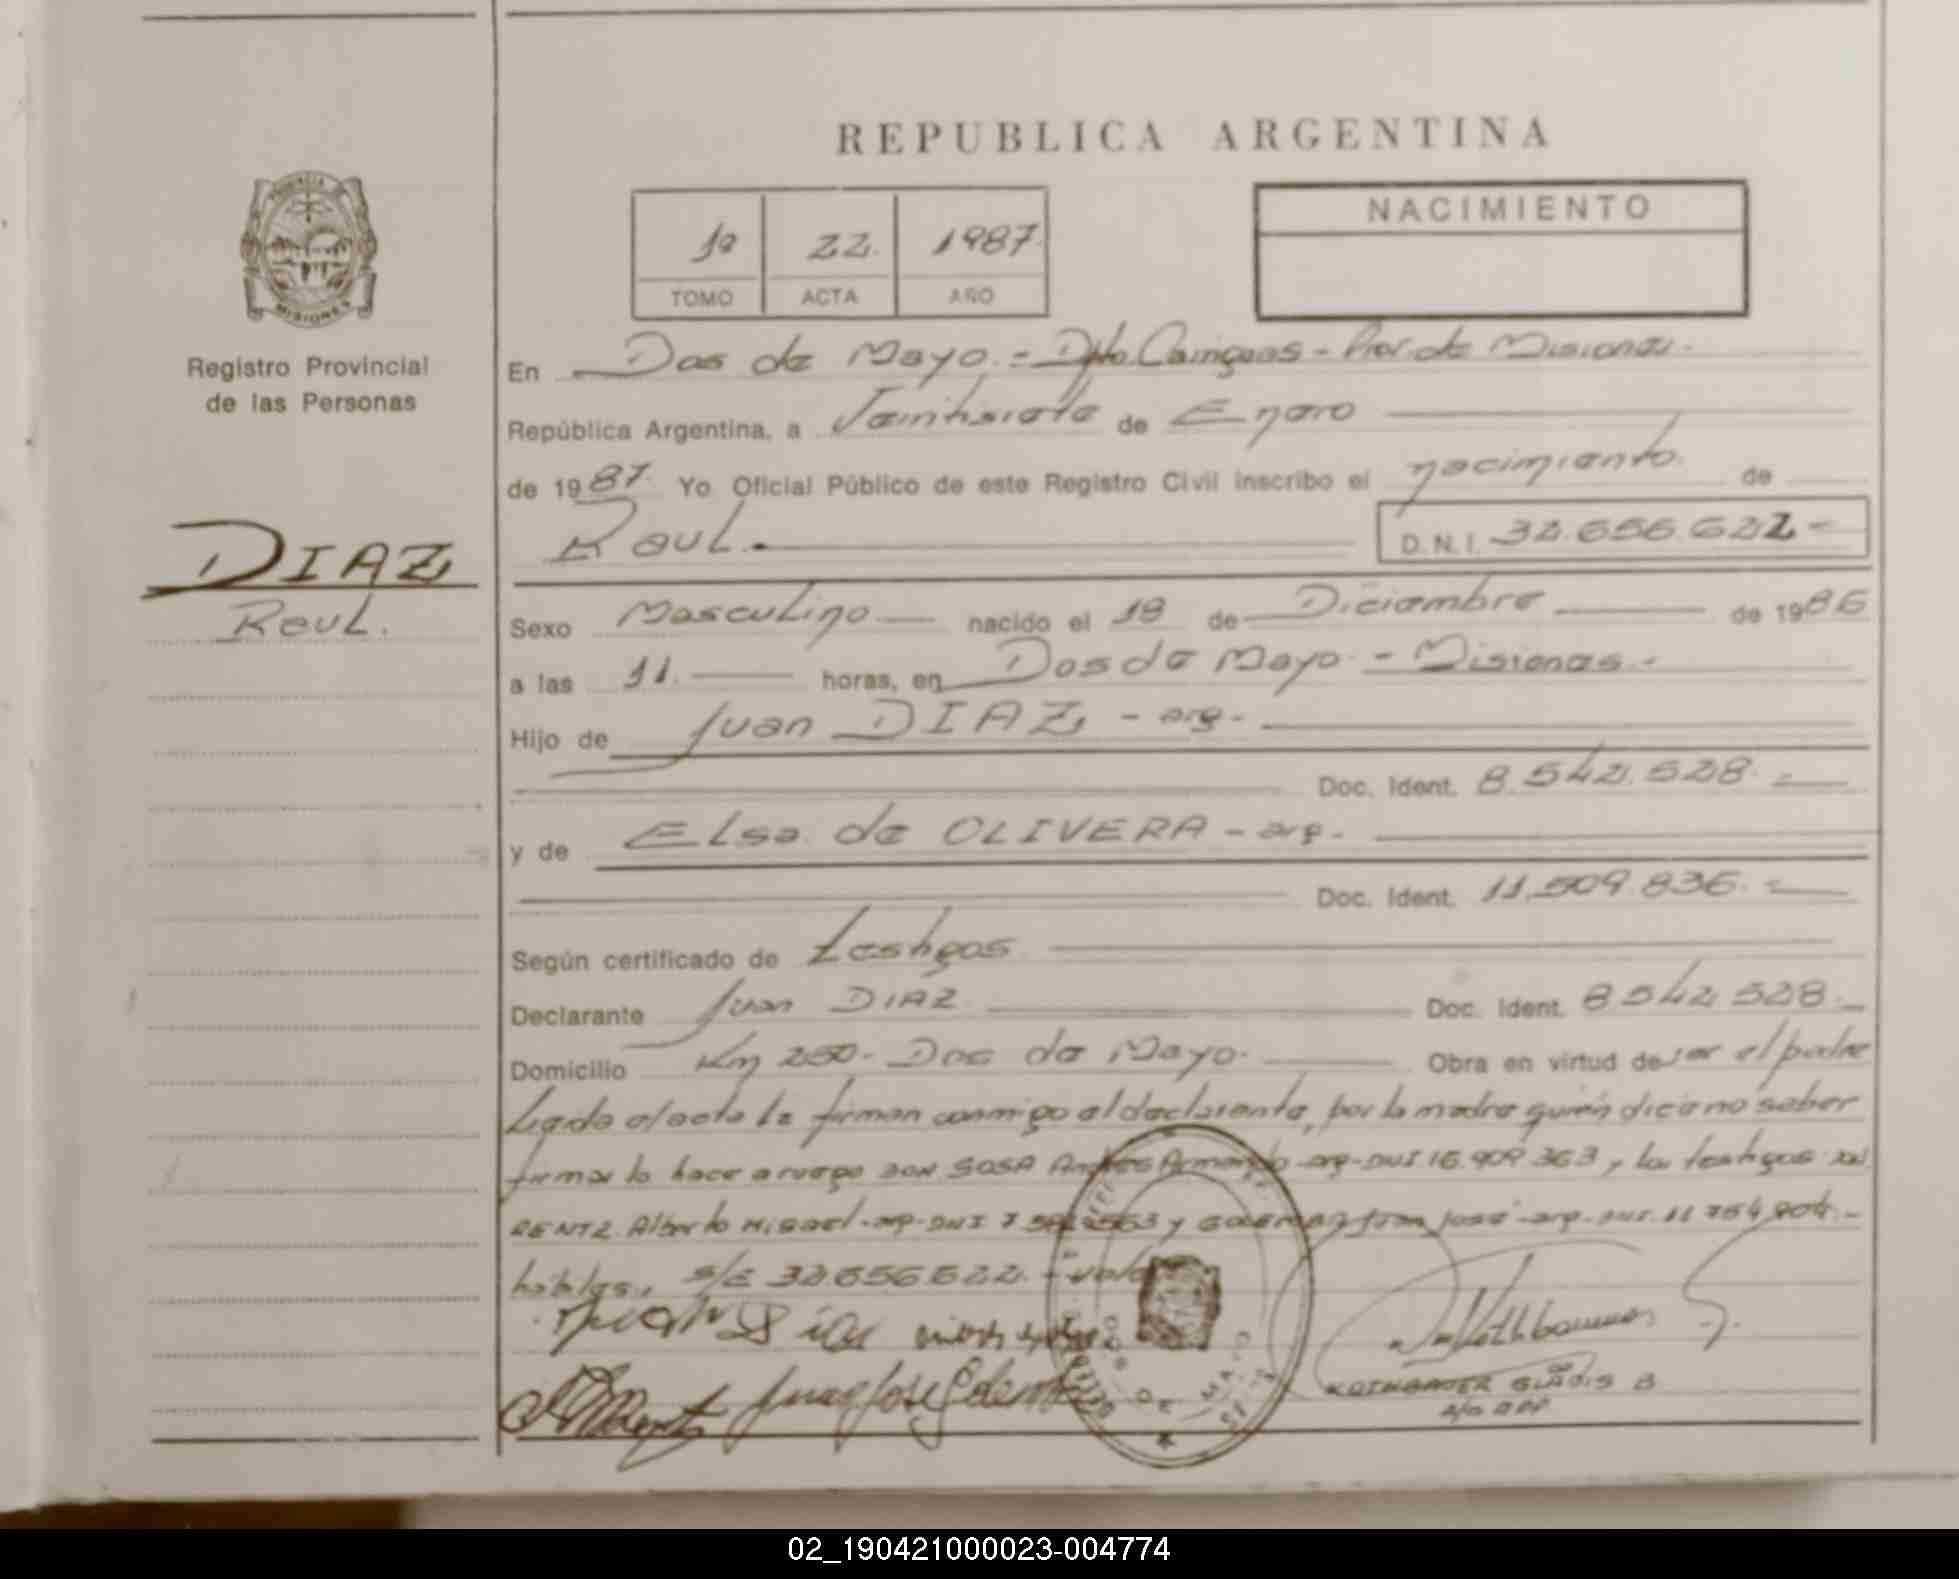 REPUBLICA ARGENTINA
1º 22. 1987.
TOMO ACTA AÑO
NACIMIENTO
PROVINCIA
MISIONES
Registro Provincial
de las Personas
DIAZ
Raul.
En Dos de Mayo.- Dpto. Cainguas - Prov. de Misiones.-
República Argentina, a Veintisiete de Enero
de 1987. Yo Oficial Público de este Registro Civil inscribo el nacimiento. de
Raul.- D.N.I. 32.656.622-
Sexo Masculino nacido el 18 de Diciembre de 1986
a las 11. horas, en Dos de Mayo - Misiones.-
Hijo de Juan DIAZ - arg-
Doc. Ident. 8.542.528.-
y de Elsa de OLIVERA - arg.
Doc. Ident. 11.509.836.-
Según certificado de testigos
Declarante Juan DIAZ Doc. Ident. 8.542.528.-
Domicilio Km 250. Dos de Mayo. Obra en virtud de ser el padre
Leida el acta la firman conmigo el declarante, por la madre quien dice no saber
firmar lo hace a ruego DON SOSA Andres Armando -arg-DNI 16.909.363 y los testigos
RENTZ Alberto Miguel-arg-DNI 7 y Juan José-arg-DNI. 11.754.904.-
habiles., S/E 32.656.622.- vale
Juan Diaz
Juan Jose
DOS DE MAYO
KOTHBAUER GLADIS B